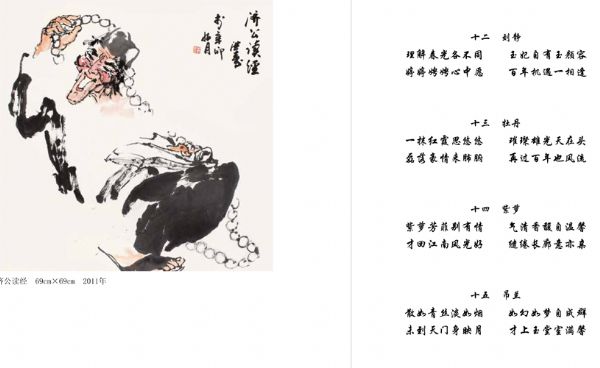 济公读经
济公读经 69cm×69cm 2011年
十二 刘静
理解春光各不同 玉妃自有玉颜容
心中愿 百年机遇一相逢
十三 牡丹
一抹红霞思悠悠 璀璨雄光天在头
磊落豪情来肺腑 再过百年也风流
十四 紫萝
紫萝芳菲别有情 气清香馥自温馨
才回江南风光好 缱绻长廊意亦柔
十五 吊兰
散如青丝淡如烟 如幻如梦自成群
未到天门身映月 才上玉堂室满馨